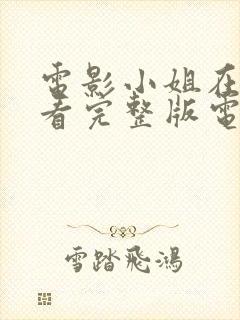 電影小姐在
看完整版電
雪踏飛鴻